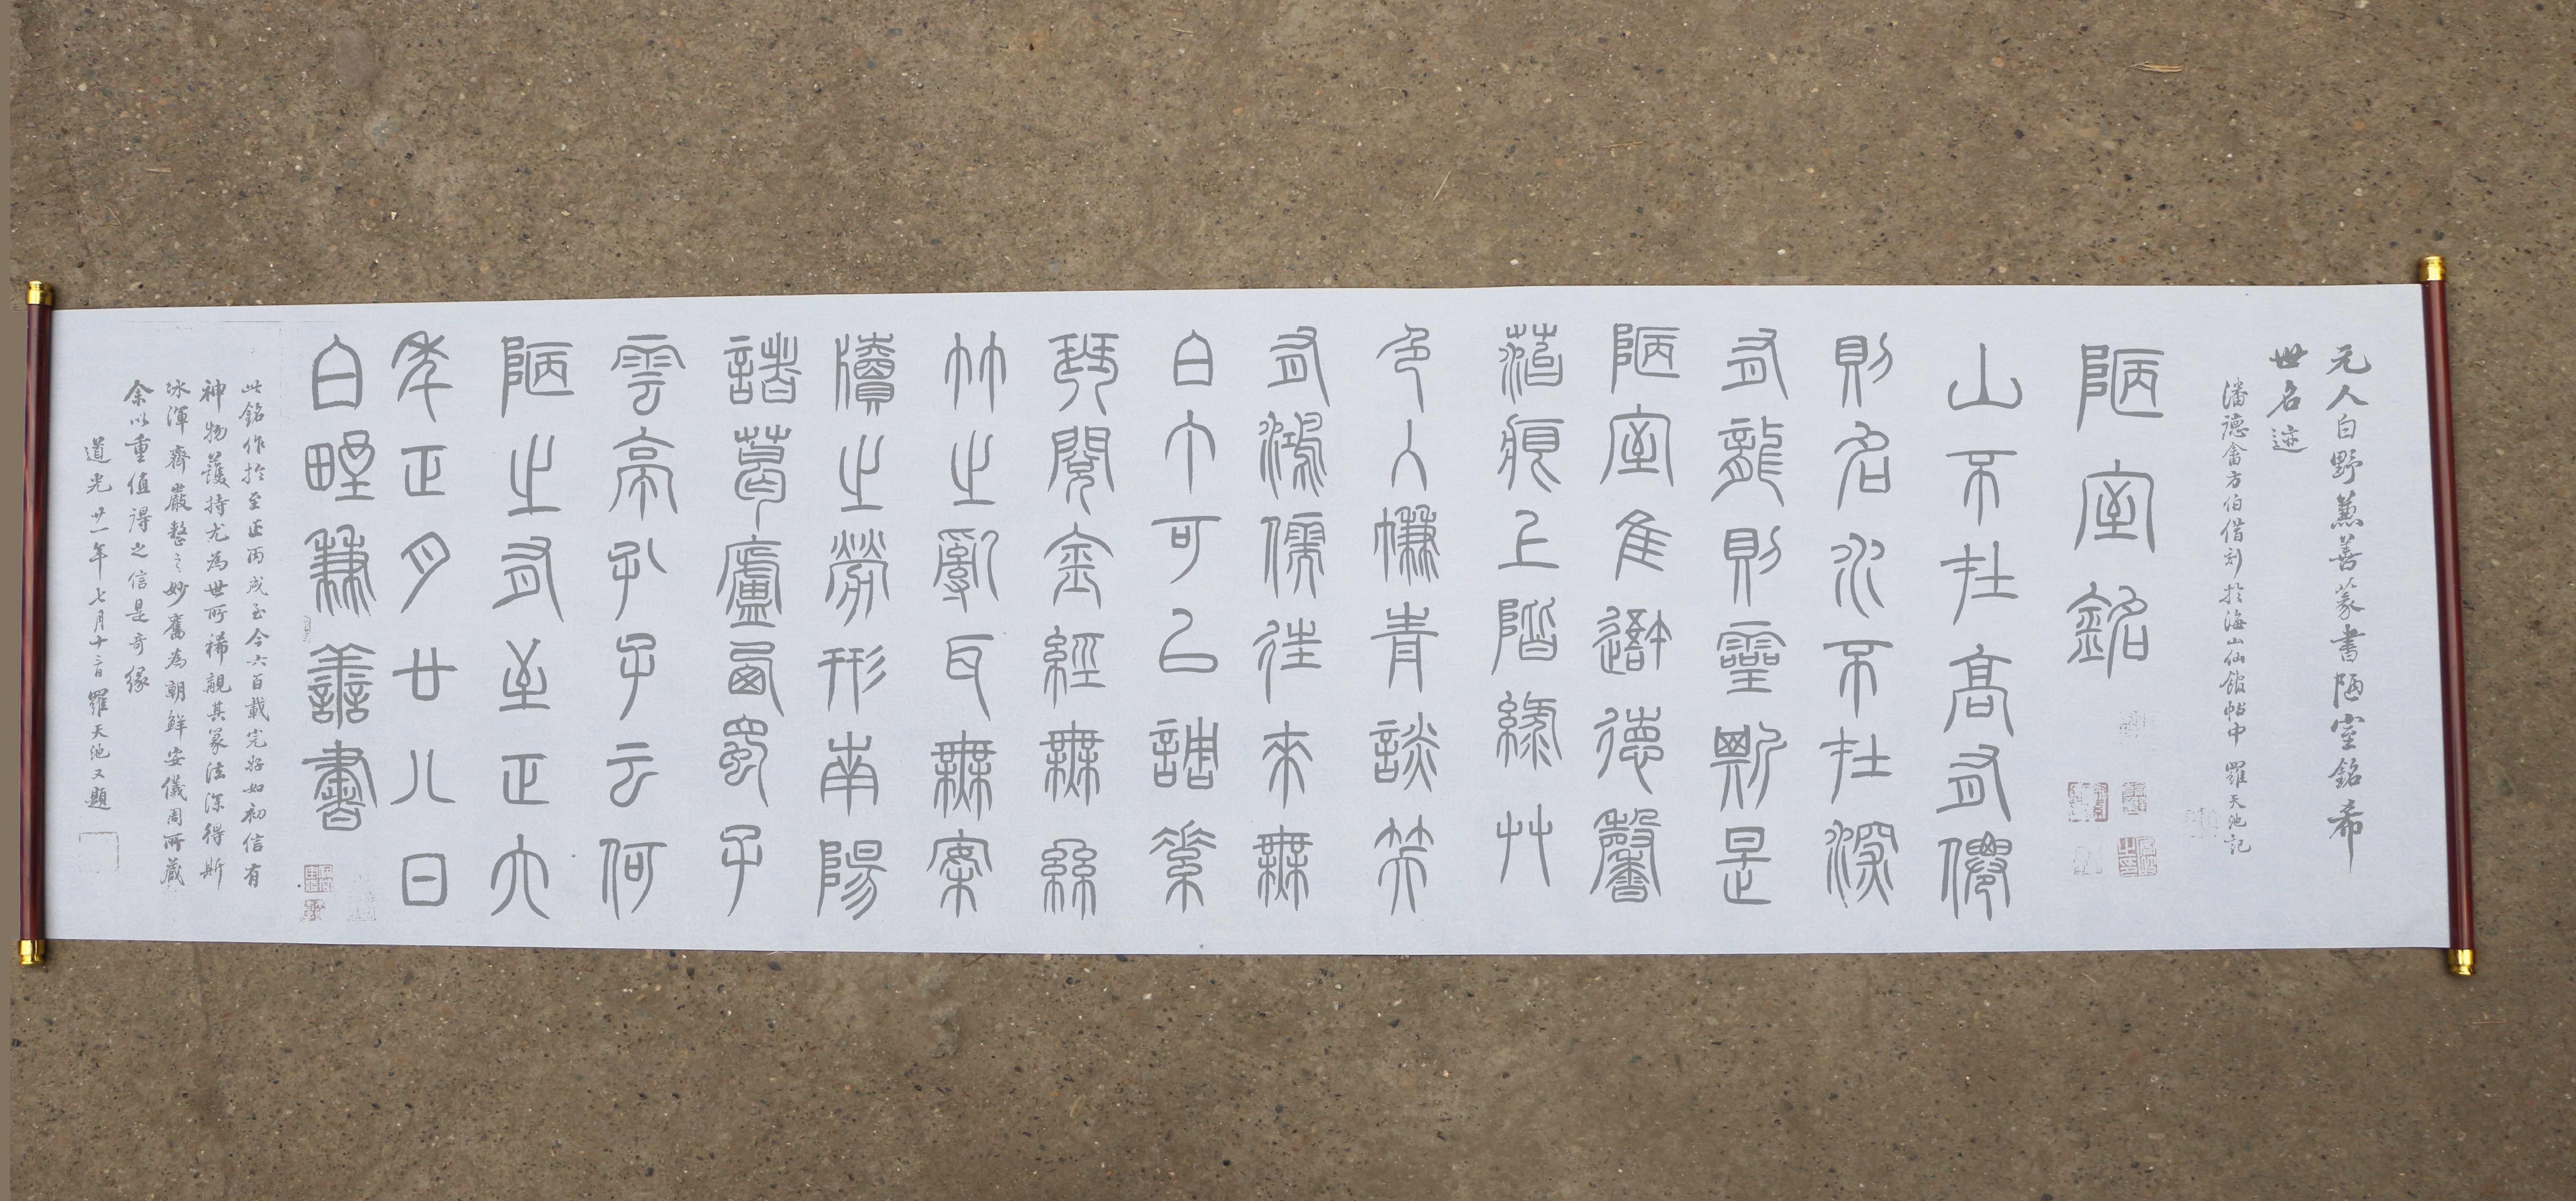 元人白野兼善篆書陋室銘希
世名迹
潘德畬方伯借刻於海山仙館帖中 羅天池記
陋室銘
山不在高有僊
則名水不在深
有龍則靈斯是
陋室惟吾德馨
苔痕上階綠艸
色入簾青談笑
有鴻儒往來無
白丁可以調素
琴閱金經無絲
竹之亂耳無案
牘之勞形南陽
諸葛廬西蜀子
雲亭孔子云何
陋之有至正六
年正月廿八日
白野兼善書
此銘作於至正丙戌至今六百載完好如初信有
神物護持尤為世所稀覯其篆法深得斯
冰渾齊嚴整之妙舊為朝鮮安儀周所藏
余以重值得之信是奇緣
道光廿一年七月十二日羅天池又題